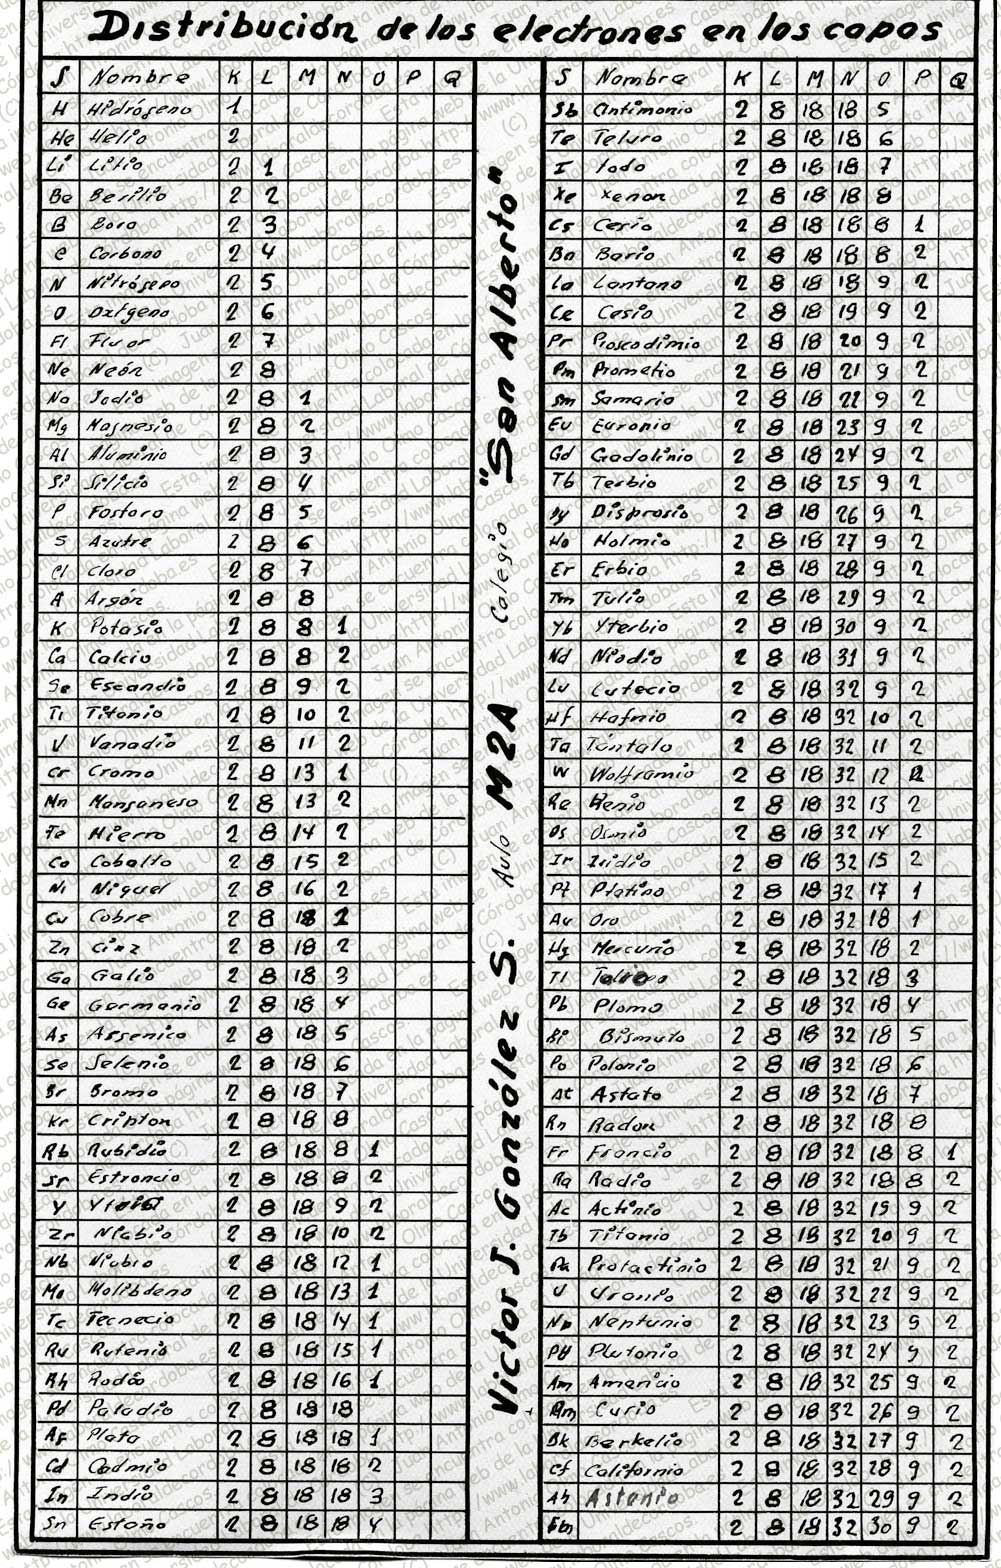 Distribución de los electrones en los capos
S Nombre K L M N O P Q
H Hidrógeno 1
He Helio 2
Li Litio 2 1
Be Berilio 2 2
B Boro 2 3
C Carbono 2 4
N Nitrógeno 2 5
O Oxígeno 2 6
Fl Fluor 2 7
Ne Neón 2 8
Na Sodio 2 8 1
Mg Magnesio 2 8 2
Al Aluminio 2 8 3
Si Silicio 2 8 4
P Fosforo 2 8 5
S Azufre 2 8 6
Cl Cloro 2 8 7
A Argón 2 8 8
K Potasio 2 8 8 1
Ca Calcio 2 8 8 2
Sc Escandio 2 8 9 2
Ti Titonio 2 8 10 2
V Vanadio 2 8 11 2
Cr Cromo 2 8 13 1
Mn Manganeso 2 8 13 2
Fe Hierro 2 8 14 2
Co Cobalto 2 8 15 2
Ni Niquel 2 8 16 2
Cu Cobre 2 8 18 1
Zn Cinz 2 8 18 2
Ga Galio 2 8 18 3
Ge Germanio 2 8 18 4
As Arsenico 2 8 18 5
Se Selenio 2 8 18 6
Br Bromo 2 8 18 7
Kr Cripton 2 8 18 8
Rb Rubidio 2 8 18 8 1
Sr Estroncio 2 8 18 8 2
Y 2 8 18 9 2
Zr Niabio 2 8 18 10 2
Nb Niobio 2 8 18 12 1
Mo Molibdeno 2 8 18 13 1
Tc Tecnecio 2 8 18 14 1
Ru Rutenio 2 8 18 15 1
Rh Rodio 2 8 18 16 1
Pd Paladio 2 8 18 18
Ag Plata 2 8 18 18 1
Cd Cadmio 2 8 18 18 2
In Indio 2 8 18 18 3
Sn Estaño 2 8 18 18 4
Victor J. González S. Aula M2A Colegio "San Alberto"
S Nombre K L M N O P Q
Sb Antimonio 2 8 18 18 5
Te Teluro 2 8 18 18 6
I Iodo 2 8 18 18 7
Xe Xenon 2 8 18 18 8
Cs Cesio 2 8 18 18 8 1
Ba Bario 2 8 18 18 8 2
La Lantano 2 8 18 18 9 2
Ce Cesio 2 8 18 19 9 2
Pr Proseodimio 2 8 18 20 9 2
Pm Prometio 2 8 18 21 9 2
Sm Samario 2 8 18 22 9 2
Eu Euronio 2 8 18 23 9 2
Gd Gadolinio 2 8 18 24 9 2
Tb Terbio 2 8 18 25 9 2
Dy Disprosio 2 8 18 26 9 2
Ho Holmio 2 8 18 27 9 2
Er Erbio 2 8 18 28 9 2
Tm Tulio 2 8 18 29 9 2
Yb Yterbio 2 8 18 30 9 2
Nd Niodio 2 8 18 31 9 2
Lu Lutecio 2 8 18 32 9 2
Hf Hafnio 2 8 18 32 10 2
Ta Tántalo 2 8 18 32 11 2
W Wolframio 2 8 18 32 12 2
Re Renio 2 8 18 32 13 2
Os Osmio 2 8 18 32 14 2
Ir Iridio 2 8 18 32 15 2
Pt Platino 2 8 18 32 17 1
Au Oro 2 8 18 32 18 1
Hg Mercurio 2 8 18 32 18 2
Tl 2 8 18 32 18 3
Pb Plomo 2 8 18 32 18 4
Bi Bismuto 2 8 18 32 18 5
Po Polonio 2 8 18 32 18 6
At Astato 2 8 18 32 18 7
Rn Radon 2 8 18 32 18 8
Fr Francio 2 8 18 32 18 8 1
Ra Radio 2 8 18 32 18 8 2
Ac Actinio 2 8 18 32 19 9 2
Th Titonio 2 8 18 32 20 9 2
Pa Protactinio 2 8 18 32 21 9 2
U Uranio 2 8 18 32 22 9 2
Np Neptunio 2 8 18 32 23 9 2
Pu Plutonio 2 8 18 32 24 9 2
Am Americio 2 8 18 32 25 9 2
Curio 2 8 18 32 26 9 2
Bk Berkelio 2 8 18 32 27 9 2
Cf Californio 2 8 18 32 28 9 2
Ah Astenio 2 8 18 32 29 9 2
Fm 2 8 18 32 30 9 2